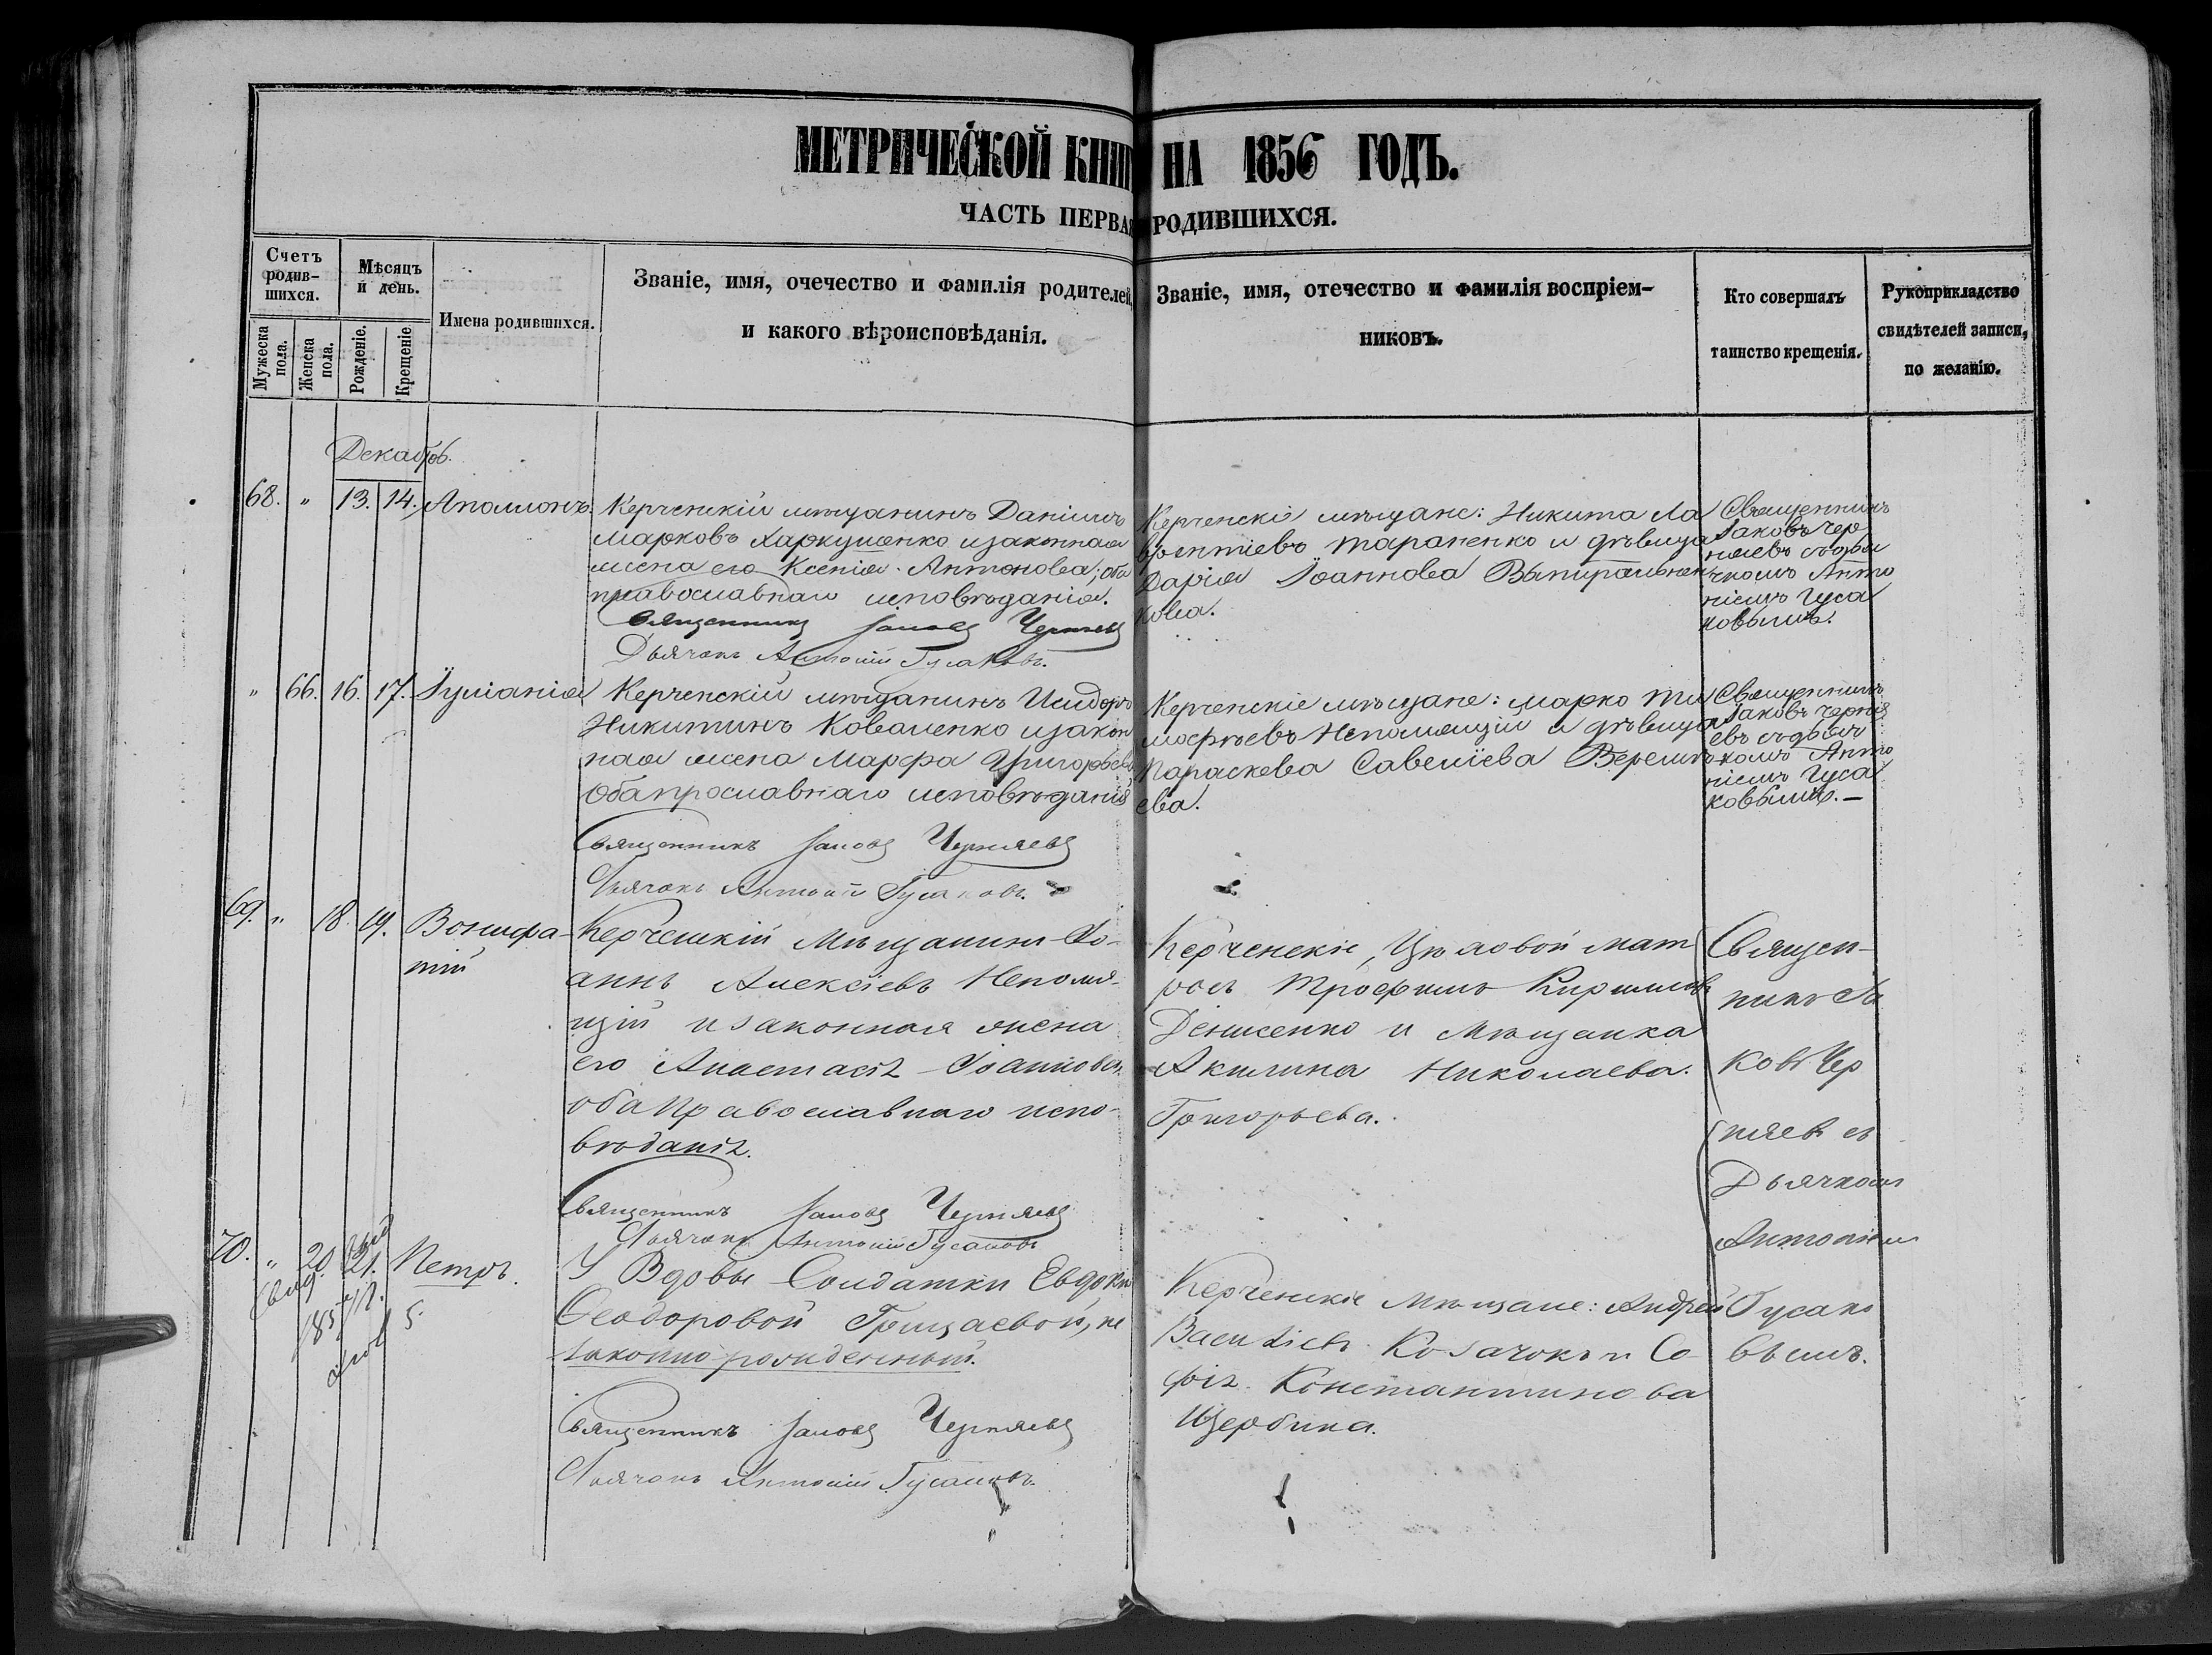 МЕТРИЧЕСКОЙ КНИГ НА 1856 ГОДЪ.
ЧАСТЬ ПЕРВАЯ РОДИВШИХСЯ.
Счетъ родив-шихся.
Мужеска пола.
Женска пола.
Мѣсяцъ и день.
Рожденіе.
Крещеніе
Имена родившихся.
Званіе, имя, очечество и фамилія родителей,
и какого вѣроисповѣданія.
Званіе, имя, отечество и фамилія воспріем-
никовъ.
Кто совершалъ
таинство крещенія.
Рукоприкладство
свидѣтелей записи,
по желанію.
Декабрь.
68. " 13. 14. Аполлонъ.
Керченскій мѣщанинъ Даніилъ
Марковъ Харкушенко и законная
жена его Ксенія Антонова; оба
православнаго исповѣданія.
Священникъ Іаковъ Черняевъ
Дьячокъ Антоній Гусаковъ.
Керченскіе мѣщане: Никита Ла
врентіевъ Тараненко и дѣвица
Дарія Іоаннова
кова.
Священникъ
Іаковъ Чер
няевъ съ дья
чкомъ Анто
ніемъ Гуса
ковымъ.
" 66. 16. 17. Іуліанія
Керченскій мѣщанинъ Исидоръ
Никитинъ Коваленко и закон
ная жена Марфа Григорьева
оба прославнаго исповѣданія
Священникъ Іаковъ Черняевъ
Дьячокъ Антоній Гусаковъ.
Керченскіе мѣщане: Марко Ти
мофѣевъ Непомящій и дѣвица
Параскева Савеліева
ева.
Священникъ
Іаковъ Черня
евъ съ дьяч
комъ Анто
ніемъ Гуса
ковымъ.—
69. " 18. 19. Вонифа-
тій
Керченскій Мѣщанинъ Іо-
аннъ Алексіевъ Непомя-
щій и законная жена
его Анастасія Іоаннова
оба Православнаго испо-
вѣданія.
Священникъ Іаковъ Черняевъ
Дьячокъ Антоній Гусаковъ
Керченскіе, Цѣловой мат
росъ Трофимъ Кирилловъ
Денисенко и Мѣщанка
Акилина Николаева
Григорьева.
Священ-
никъ Іа
ковъ Чер
няевъ съ
Дьячкомъ
Антоніемъ
Гусако
вымъ.
70. " 20 21. Петръ.
У Вдовы Солдатки Евдокіи
Ѳеодоровой Грищаевой, не
законно рожденный.
Священникъ Іаковъ Черняевъ
Дьячокъ Антоній Гусаковъ.
Керченскіе Мѣщане: Андрей
Василіевъ Козачокъ и Со
фія Константинова
Щербина.